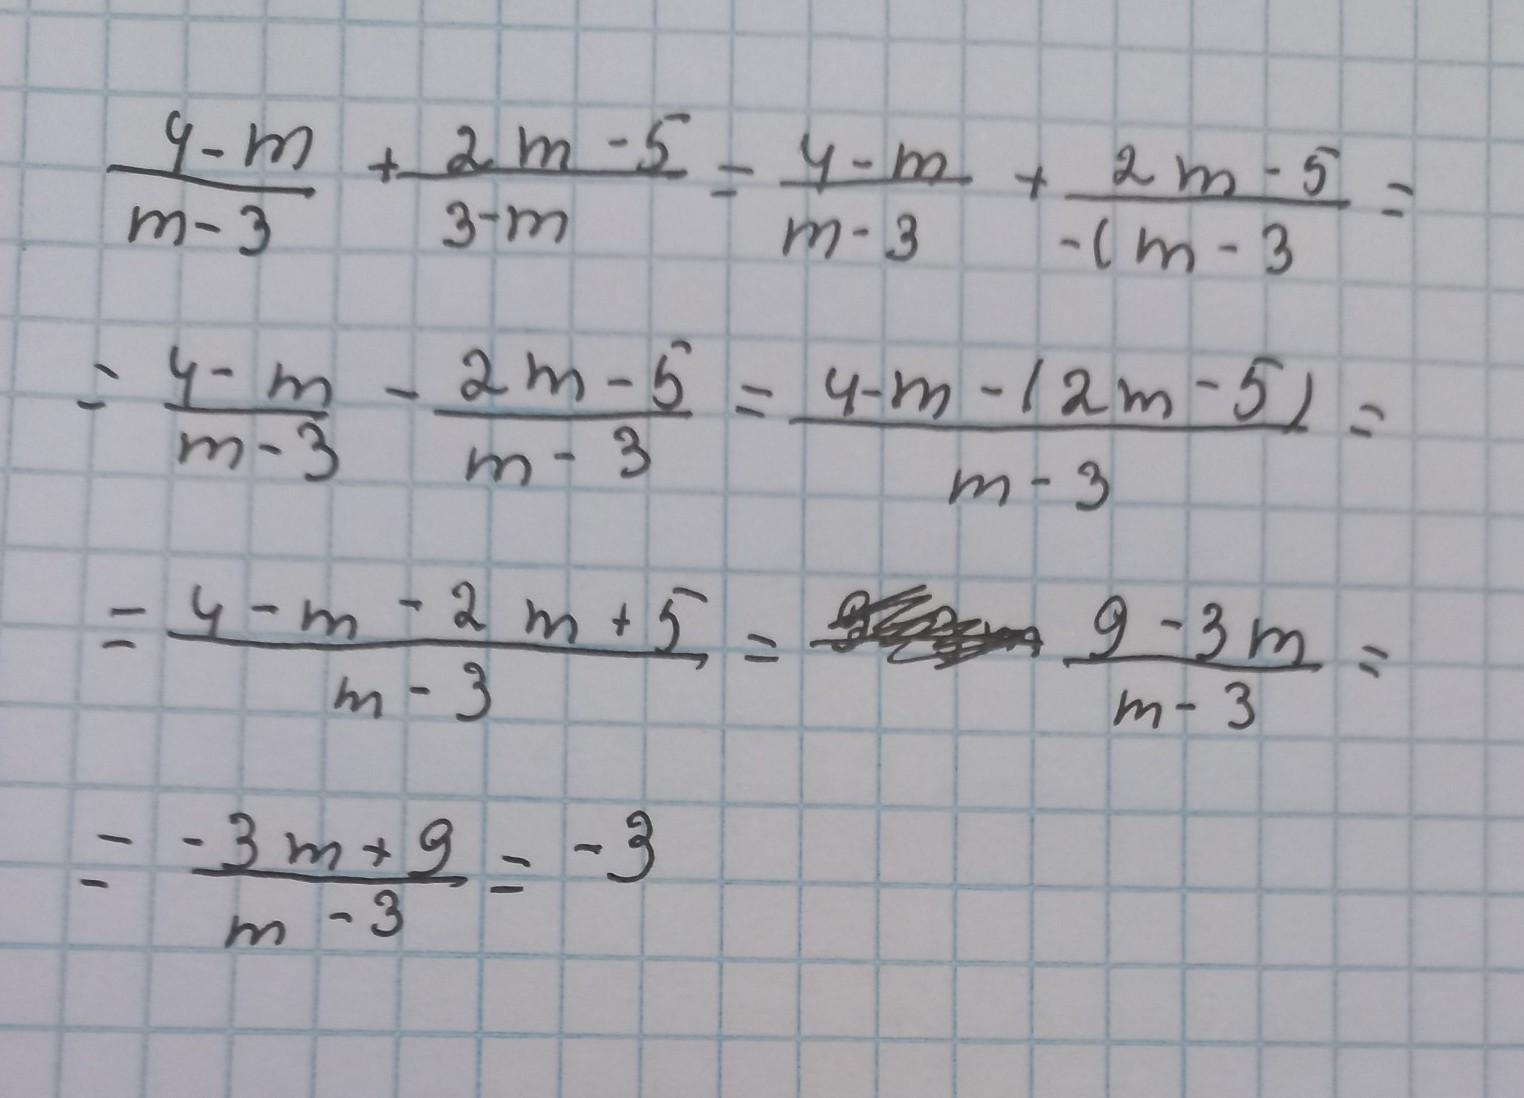 (4-m)/(m-3) + (2m-5)/(3-m) = (4-m)/(m-3) + (2m-5)/(-(m-3) =
= (4-m)/(m-3) - (2m-5)/(m-3) = (4-m-(2m-5))/(m-3) =
= (4-m-2m+5)/(m-3) = (9-3m)/(m-3) =
= (-3m+9)/(m-3) = -3